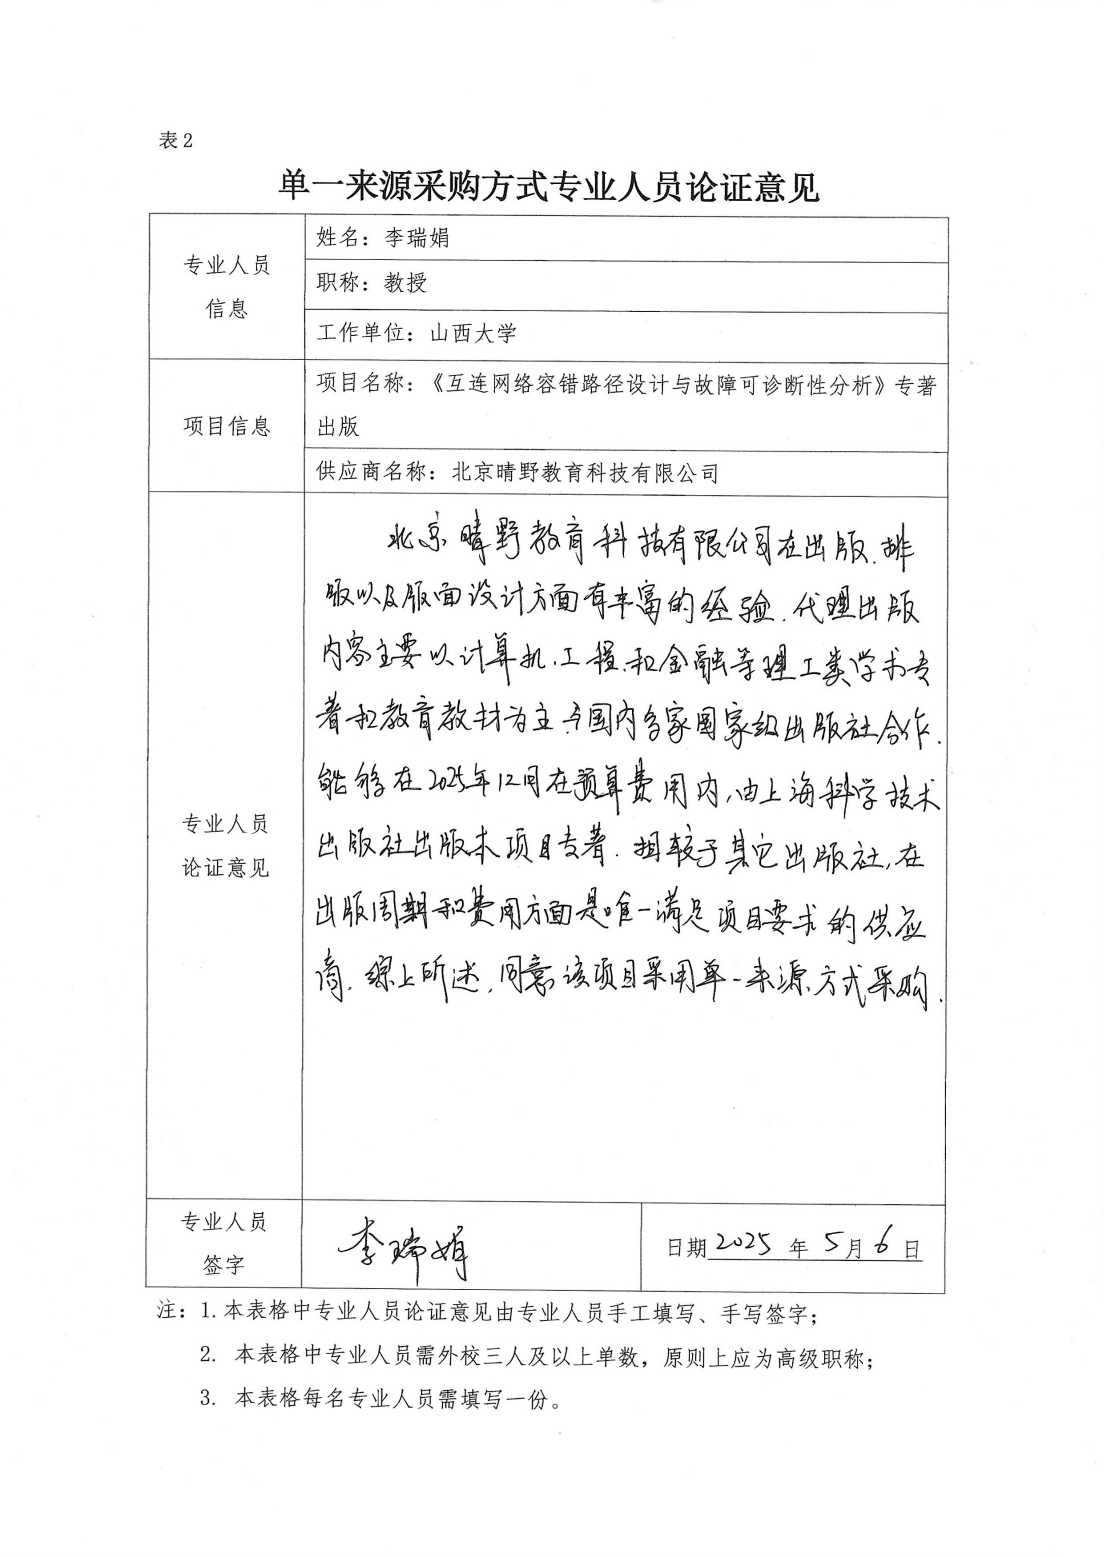 表2
单一来源采购方式专业人员论证意见
专业人员
信息
姓名：李瑞娟
职称：教授
工作单位：山西大学
项目信息
项目名称：《互连网络容错路径设计与故障可诊断性分析》专著
出版
供应商名称：北京晴野教育科技有限公司
专业人员
论证意见
北京晴野教育科技有限公司在出版、排
版以及版面设计方面有丰富的经验，代理出版
内容主要以计算机、工程、和金融等理工类学术专
著和教育教材为主，与国内多家国家级出版社合作，
能够在2025年12月在预算费用内，由上海科学技术
出版社出版本项目专著。相较于其它出版社，在
出版周期和费用方面是唯一满足项目要求的供应
商。综上所述，同意该项目采用单一来源方式采购。
专业人员
签字
李瑞娟
日期2025年5月6日
注：1.本表格中专业人员论证意见由专业人员手工填写、手写签字；
2. 本表格中专业人员需外校三人及以上单数，原则上应为高级职称；
3. 本表格每名专业人员需填写一份。